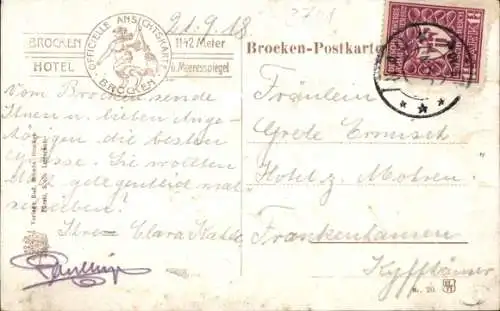 21.9.18
3701
BROCKEN HOTEL
OFFICIELLE ANSICHTSKARTE BROCKEN
1142 Meter ü. Meeresspiegel
Brocken-Postkarte
Vom Brocken sende
Ihnen u. lieben Ange-
hörigen die besten
Grüsse. Sie wollten
gelegentlich mal
schreiben?
Ihre Clara
Fräulein
Grete
Hotel z. Mohren
Frankenhausen
Kyffhäuser
Nr. 20.